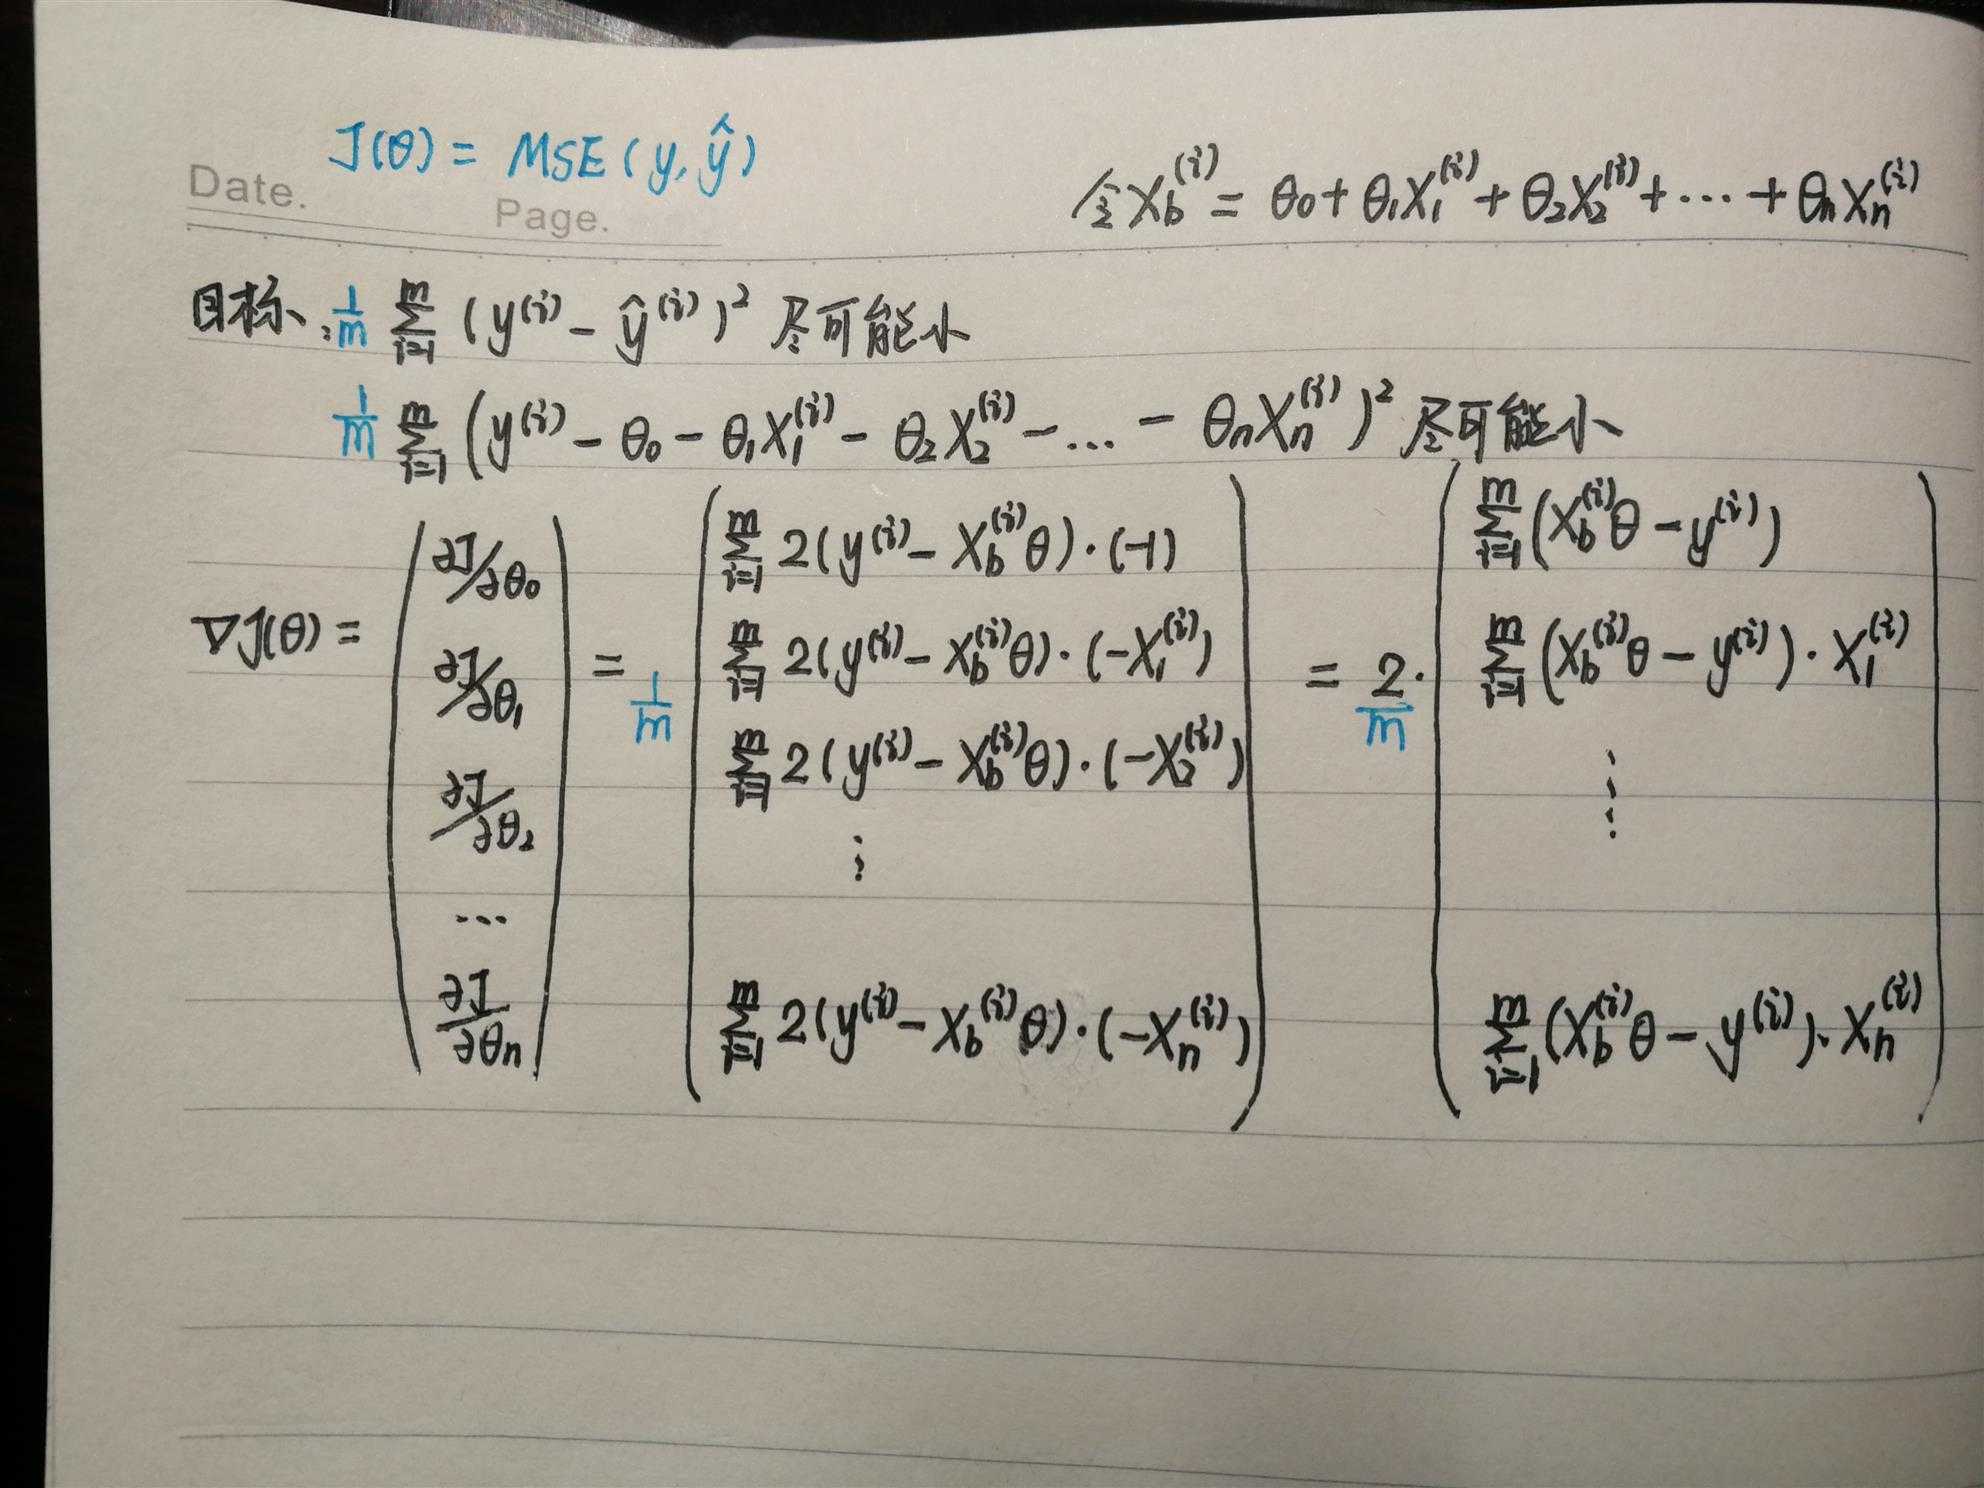 J(θ) = MSE(y, ŷ)
Date.
Page.
令 X_b^{(i)} = θ₀ + θ₁X₁^{(i)} + θ₂X₂^{(i)} + ⋯ + θₙXₙ^{(i)}
目标: \frac{1}{m} \sum_{i=1}^{m} (y^{(i)} - ŷ^{(i)})² 尽可能小
\frac{1}{m} \sum_{i=1}^{m} (y^{(i)} - θ₀ - θ₁X₁^{(i)} - θ₂X₂^{(i)} - ... - θₙXₙ^{(i)})² 尽可能小
∇J(θ) = \begin{pmatrix} ∂J/∂θ₀ \\ ∂J/∂θ₁ \\ ∂J/∂θ₂ \\ ⋯ \\ \frac{∂J}{∂θₙ} \end{pmatrix} = \frac{1}{m} \begin{pmatrix} \sum_{i=1}^{m} 2(y^{(i)} - X_b^{(i)}θ)·(-1) \\ \sum_{i=1}^{m} 2(y^{(i)} - X_b^{(i)}θ)·(-X₁^{(i)}) \\ \sum_{i=1}^{m} 2(y^{(i)} - X_b^{(i)}θ)·(-X₂^{(i)}) \\ ⋮ \\ \sum_{i=1}^{m} 2(y^{(i)} - X_b^{(i)}θ)·(-Xₙ^{(i)}) \end{pmatrix} = \frac{2}{m}· \begin{pmatrix} \sum_{i=1}^{m} (X_b^{(i)}θ - y^{(i)}) \\ \sum_{i=1}^{m} (X_b^{(i)}θ - y^{(i)})·X₁^{(i)} \\ ⋮ \\ \sum_{i=1}^{m} (X_b^{(i)}θ - y^{(i)})·Xₙ^{(i)} \end{pmatrix}